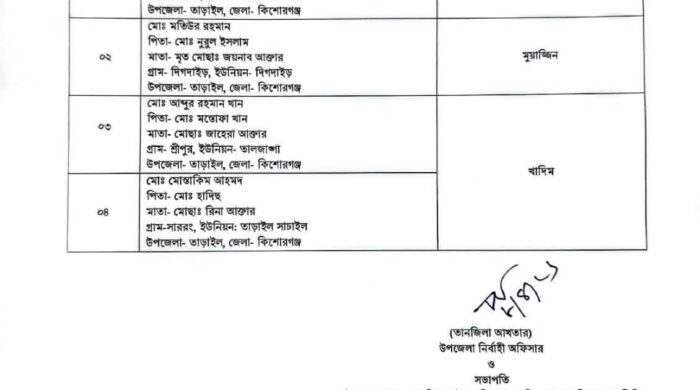 উপজেলা- তাড়াইল, জেলা- কিশোরগঞ্জ
০২
মোঃ মতিউর রহমান
পিতা- মোঃ নুরুল ইসলাম
মাতা- মৃত মোছাঃ জয়নাব আক্তার
গ্রাম- দিগদাইড়, ইউনিয়ন- দিগদাইড়
উপজেলা- তাড়াইল, জেলা- কিশোরগঞ্জ
মুয়াজ্জিন
০৩
মোঃ আব্দুর রহমান খান
পিতা- মোঃ মস্তোফা খান
মাতা- মোছাঃ জাহেরা আক্তার
গ্রাম- শ্রীপুর, ইউনিয়ন- তালজাঙ্গা
উপজেলা- তাড়াইল, জেলা- কিশোরগঞ্জ
খাদিম
০৪
মোঃ মোস্তাকিম আহমদ
পিতা- মোঃ হাদিছ
মাতা- মোছাঃ রিনা আক্তার
গ্রাম-সাররং, ইউনিয়ন: তাড়াইল সাচাইল
উপজেলা- তাড়াইল, জেলা- কিশোরগঞ্জ
(তানজিলা আখতার)
উপজেলা নির্বাহী অফিসার
ও
সভাপতি